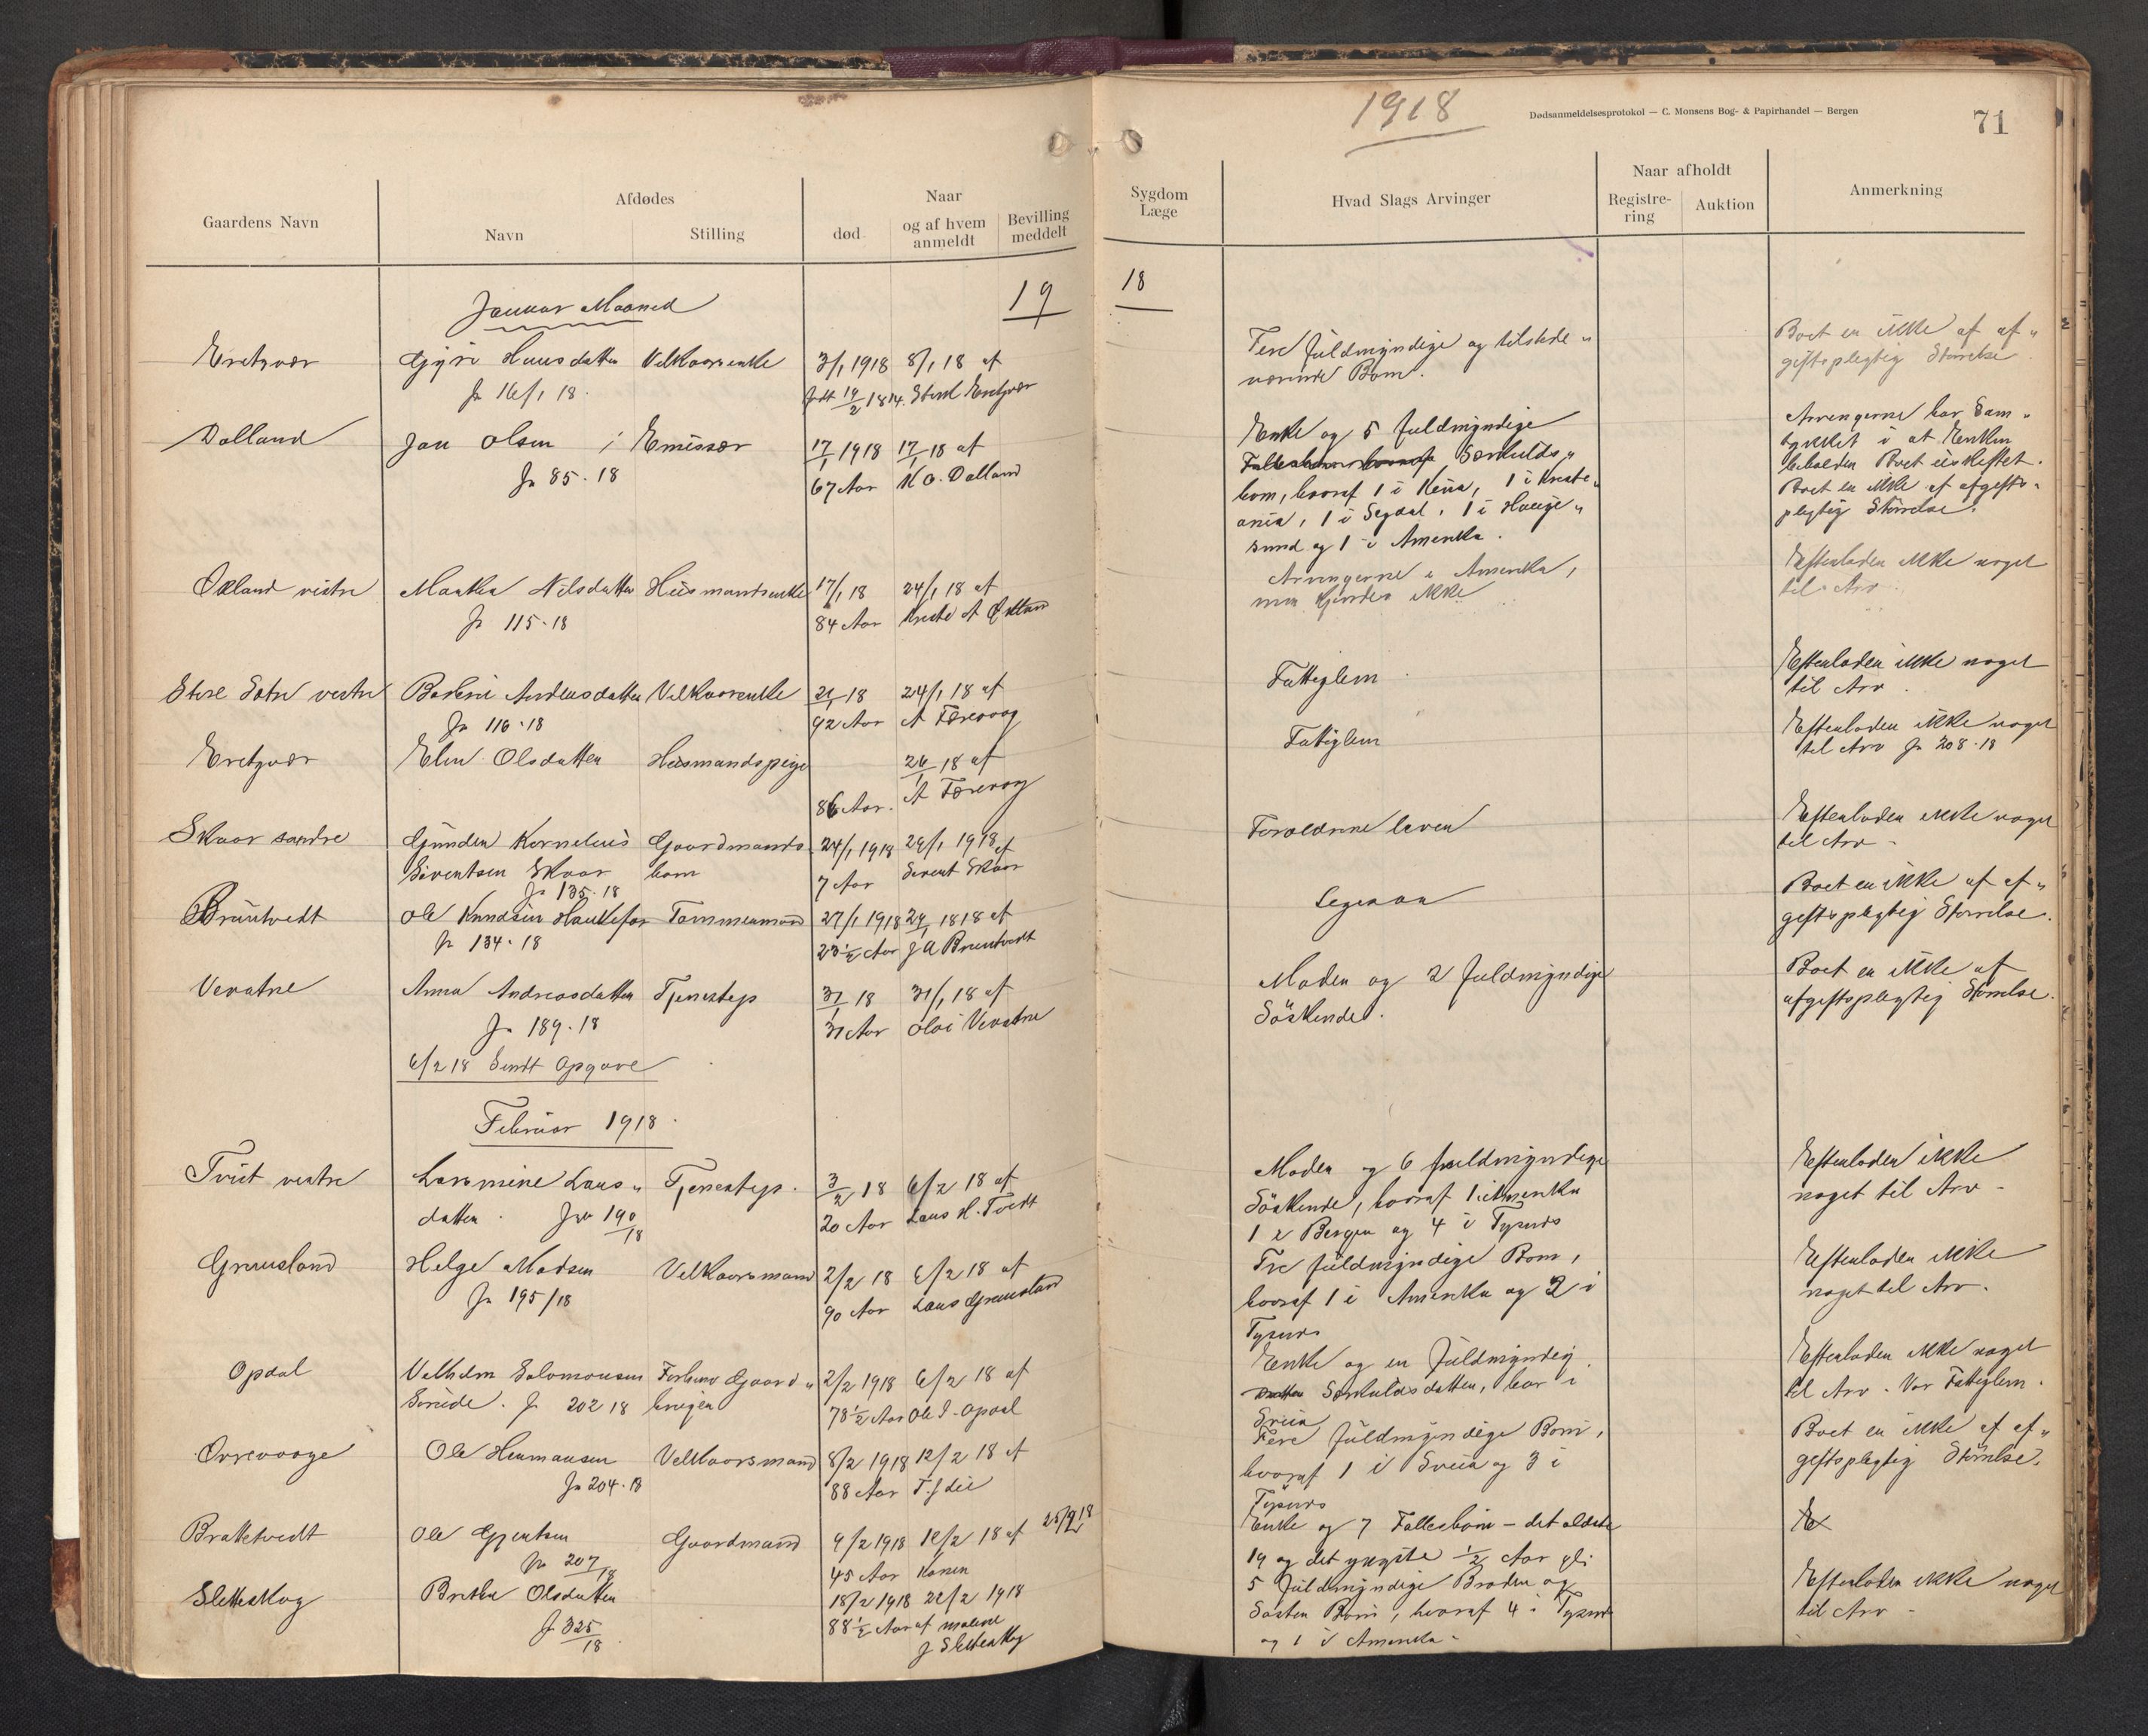 1918
Dødsanmeldelsesprotokol — C. Monsens Bog- & Papirhandel — Bergen
71
Gaardens Navn
Afdødes
Navn
Stilling
Naar
død
og af hvem
anmeldt
Bevilling
meddelt
Sygdom
Læge
Hvad Slags Arvinger
Naar afholdt
Registre-
ring
Auktion
Anmerkning
Januar Maaned
19
18
Eretvær
Gyri Hansdatter
Jr 16/1 18.
3/1 1918 8/1 18 af
Fire fuldmyndige og tilstede„
værende Børn.
Boet er ikke af af„
giftspligtig Størrelse
Dalland
Jan Olsen
Emissær
Jr 85.18
17/1 1918 17/1 18 af
67 Aar K O. Dalland
Enke og 5 fuldmyndige
Særkulds„
børn, hvoraf 1 i Kina, 1 i Kristi„
ania, 1 i Segdal, 1 i Hauge„
sund og 1 i Amerika.
Arvingerne har Sam„
tykket i at Enken
beholder Boet uskiftet.
Boet er ikke af afgifts„
pligtig Størrelse.
Øxland vestre
Nilsdatter
Husmandsenke
Jr 115.18
17/1 18 24/1 18 af
84 Aar
Arvingerne i Amerika,
men kjendes ikke
Efterlader ikke noget
til Arv.
Store Sotre vestre
Andersdatter
Velkaarsenke
Jr 116.18
21/1 18 24/1 18 af
92 Aar A Færevaag
Fattiglem
Efterlader ikke noget
til Arv.
Eretvær
Elen Olsdatter
Husmandspige
26/1 18 af
86 Aar. A Færevaag
Fattiglem
Efterlader ikke noget
til Arv Jr 208.18
Skaar søndre
Gunder Kornelius
Sivertsen Skaar
Jr 135.18
Gaardmands„
barn
24/1 1918 29/1 1918 af
7 Aar Sivert Skaar
Forældrene lever
Efterlader ikke noget
til Arv -
Bruntvedt
Ole Knudsen
Tømmermand
Jr 134.18
27/1 1918 29/1 1818 af
23½ Aar J A Bruntvedt
Boet er ikke af af„
giftspligtig Størrelse.
Vevatne
Anna Andreasdatter
Tjenestep
Jr 189.18
31/1 18 31/1 18 af
31 Aar Olai Vevatne
Moder og 2 fuldmyndige
Söskende.
Boet er ikke af
afgiftspligtig Størrelse.
6/2 18 Sendt Opgave
Februar 1918.
Tveit vestre
Larsmine Lars„
datter. Jr 190/18
Tjenestep.
3/2 18 6/2 18 af
20 Aar Lars H. Tveit
Moder og 6 fuldmyndige
Söskende, hvoraf 1 i Amerika
1 i Bergen og 4 i Tysnes
Efterlader ikke
noget til Arv -
Grunsland
Helge Madsen
Velkaarsmand
Jr 195/18
2/2 18 6/2 18 af
90 Aar Lars Grunsland
Tre fuldmyndige Børn,
hvoraf 1 i Amerika og 2 i
Tysnes
Efterlader ikke
noget til Arv.
Opdal
Vilhelm Salomonsen
Jr 202 18
Forhenv Gaard„
bruger
2/2 1918 6/2 18 af
78½ Aar Ole J. Opdal
Enke og en fuldmyndig
Særkuldsdatter, bor i
Sveio
Efterlader ikke noget
til Arv. Var Fattiglem.
Orrevaage
Ole Hermansen
Velkaarsmand
Jr 204.18
8/2 1918 12/2 18 af
88 Aar
Fire fuldmyndige Børn,
hvoraf 1 i Sveio og 3 i
Tysnes
Boet er ikke af af„
giftspligtig Størrelse.
Braktvedt
Ole Gjertsen
Jr 207/18
Gaardmand
9/2 1918 12/2 18 af
45 Aar Konen
25/2 18
Enke og 7 Fællesbørn - det ældste
19 og det yngste ½ Aar gl.
Sletteskog
Brithe Olsdatter
Jr 325/18
18/2 1918 22/2 1918
88½ Aar af
J Sletteskog
5 fuldmyndige Broder og
Søster Børn, hvoraf 4 i Tysnes
og 1 i Amerika -
Efterlader ikke noget
til Arv -